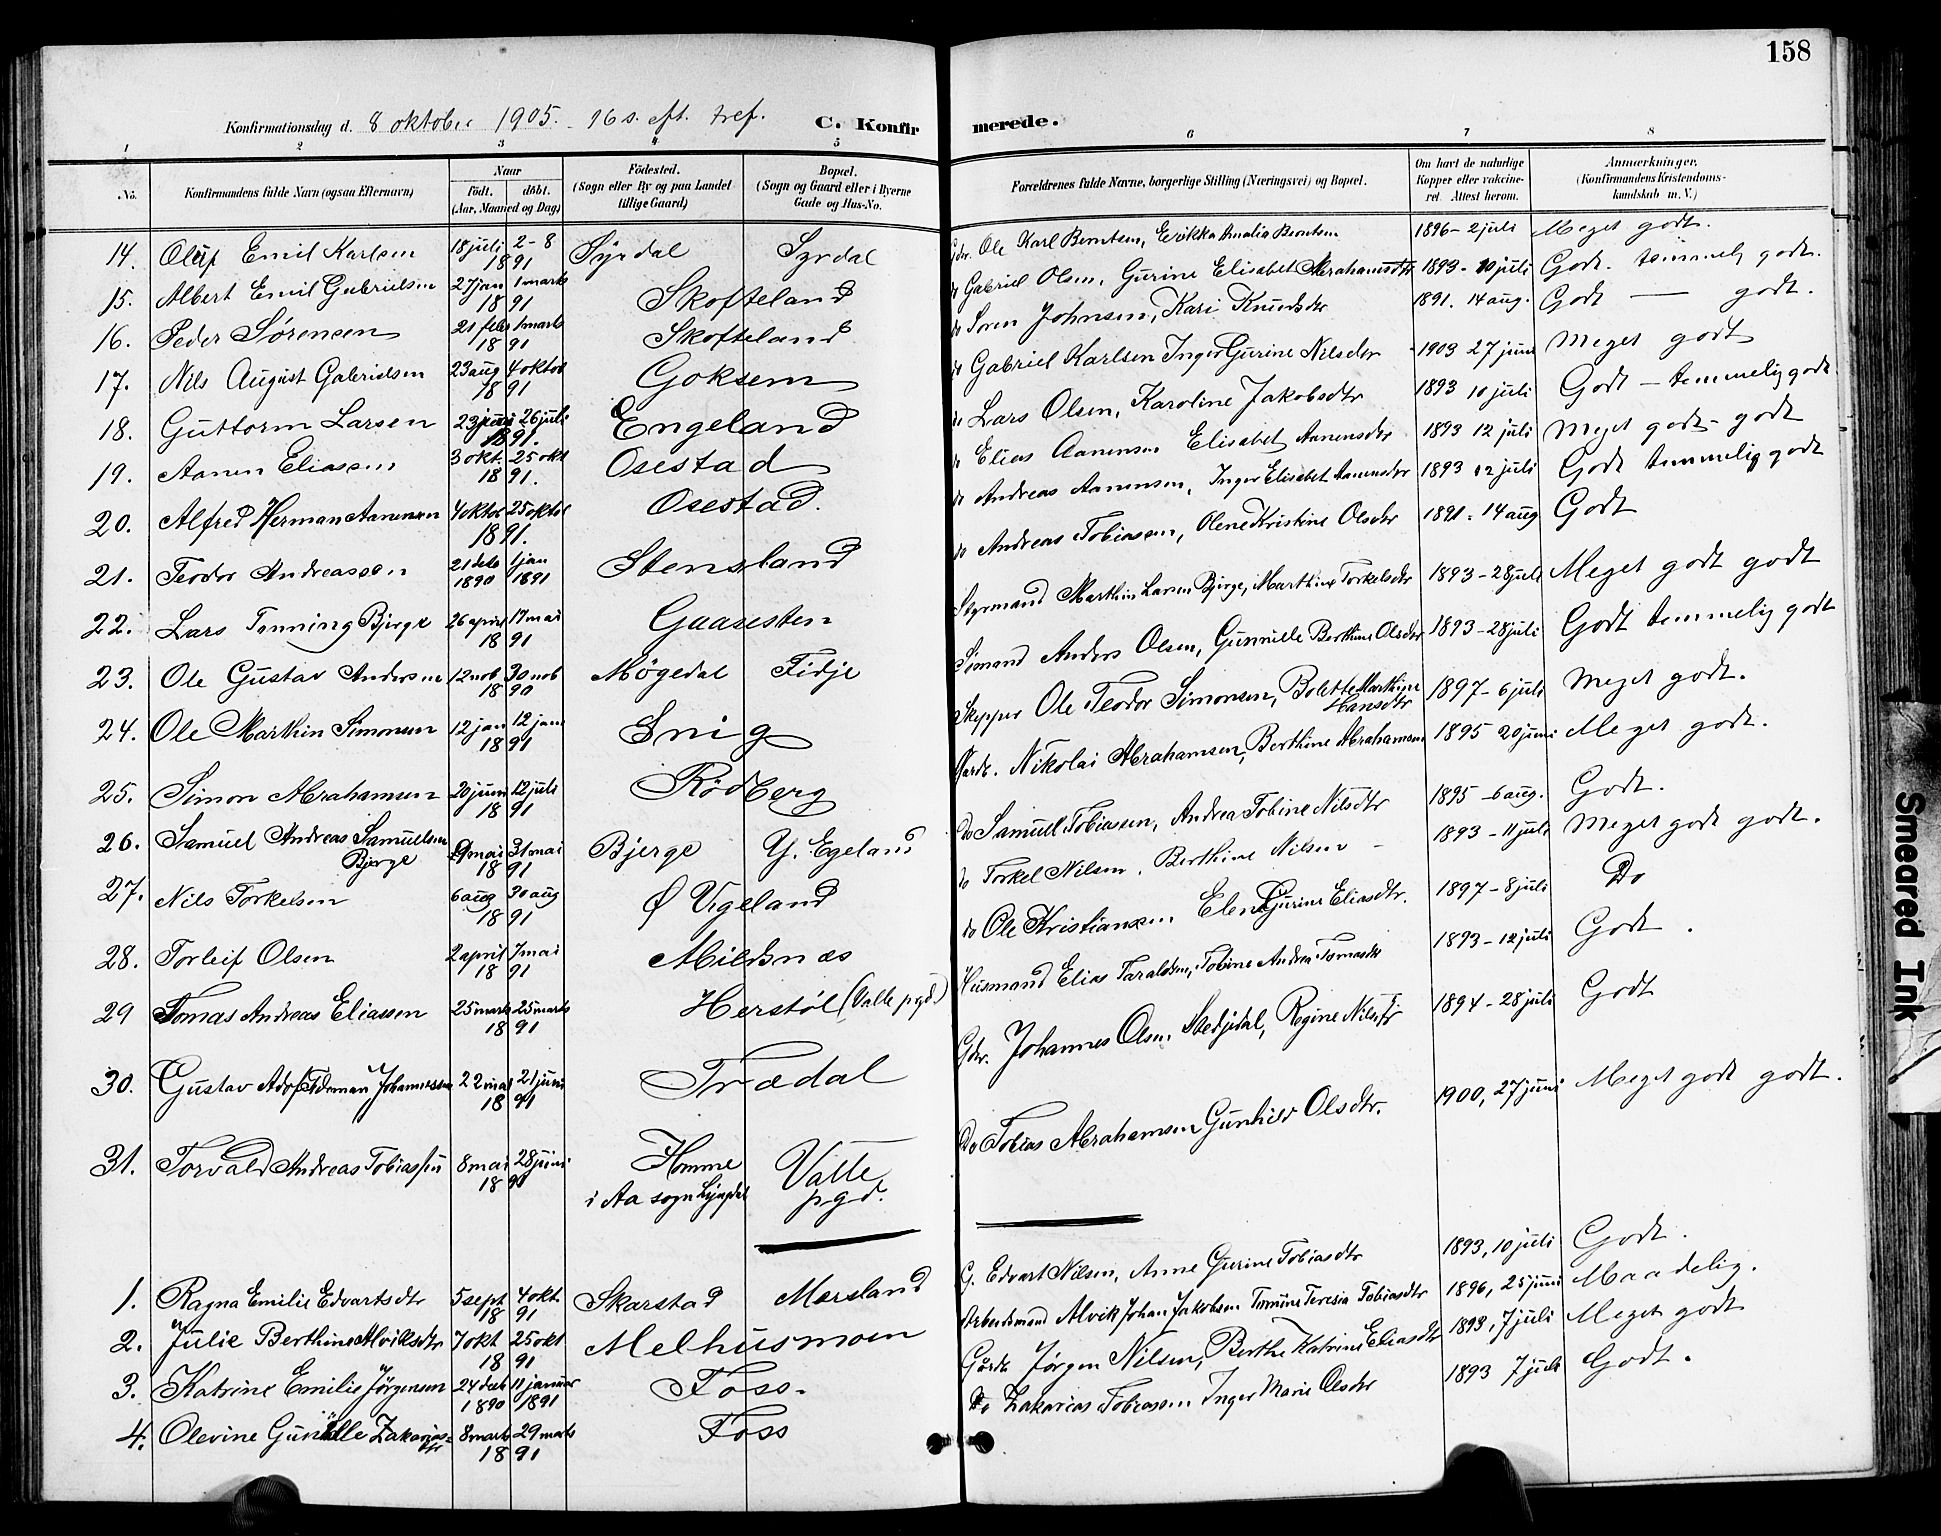 158
Konfirmationsdag d. 8 oktober 1905. 16 s. eft. tref. C. Konfirmerede.
1 2 3 4 5 6 7 8
No. Konfirmandens fulde Navn (ogsaa Efternavn) Naar Født. døbt. (Aar, Maaned og Dag) Fødested. (Sogn eller By og paa Landet tillige Gaard) Bopæl. (Sogn og Gaard eller i Byerne Gade og Hus-No. Forældrenes fulde Navne, borgerlige Stilling (Næringsvei) og Bopæl. Om havt de naturlige Kopper eller vaccineret. Attest herom. Anmærkninger. (Konfirmandens Kristendomskundskab m. V.)
14. Oluf Emil Karlsen 18 juli 2-8 1891 Syrdal Syrdal Gdr. Ole Karl Berntsen, Erikka Amalia Berntsen 1896-2 juli Meget godt.
15. Albert Emil Gabrielsen 27 jan 1 marts 1891 Skofteland do Gabriel Olsen, Gurine Elisabet Abrahamsdtr 1893-10 juli Godt. temmelig godt.
16. Peder Sørensen 21 febr 1 marts 1891 Skofteland do Soren Johnsen, Kari Knudsdtr 1891. 14 aug. Godt — godt.
17. Nils August Gabrielsen 23 aug 4 oktob 1891 Goksem do Gabriel Karlsen Inger Gurine Nilsdtr 1903 27 juni Meget godt
18. Guttorm Larsen 23 juni 26 juli 1891. Engeland do Lars Olsen, Karoline Jakobsdtr 1893 10 juli Godt - temmelig godt
19. Aanen Eliassen 3 okt. 25 okt 1891. Osestad do Elias Aanensen Elisabet Aanensdtr 1893 12 juli Meget godt - godt
20. Alfred Herman Aanensen 4 oktob 25 oktob 1891. Osestad. do Andreas Aanensen, Inger Elisabet Aanensdtr 1893 12 juli Godt temmelig godt
21. Teodor Andreassen 21 deb 1890 1 jan 1891 Stensland do Andreas Tobiassen, Olene Kristine Olsdtr 1891-14 aug Godt
22. Lars Tønning Bjerge 26 april 17 mai 1891 Gaasesten Styrmand Marthin Larsen Bjerge, Marthine Torkelsdtr 1893-28 juli Meget godt godt
23. Ole Gustav Andersen 12 nob 30 nob 1890 Møgedal Fidje Sømand Anders Olsen, Gunnille Berthine Olsdtr 1893-28 juli Godt temmelig godt
24. Ole Marthin Simonsen 12 jan 12 jan 1891 Snig Skipper Ole Teodor Simonsen, Bolette Marthine Hansdtr 1897-6 juli Meget godt.
25. Simon Abrahamsen 20 juni 12 juli 1891 Rødberg Gardb. Nikolai Abrahamsen, Berthine Abrahamsen 1895 20 juni Meget godt.
26. Samuel Andreas Samuelsen Bjerge 9 mai 31 mai 1891 Bjerge Y. Egeland Do Samuel Tobiassen, Andrea Tobine Nilsdtr 1895-6 aug. Godt.
27. Nils Torkelsen 6 aug 30 aug 1891 Ø Vigeland do Torkel Nilsen, Berthine Nilsen - 1893-11 juli Meget godt godt.
28. Torleif Olsen 2 april 7 mai 1891 Mildsnæs do Ole Kristiansen Elene Gurine Eliasdtr. 1897-8 juli Do
29 Tomas Andreas Eliassen 25 marts 25 marts 1891 Herstøl (Valle pgd.) Husmand Elias Taraldsen, Tobine Andrea Tomasdtr 1893-12 juli Godt.
30. Gustav Adolf Johannessen 22 mai 21 juni 1891 Trædal Gdr. Johannes Olsen Regine Nilsdtr 1894-28 juli Godt
31. Torvald Andreas Tobiassen 8 mai 28 juni 1890 Homme i Aa sogn Lyngdal Valle pgd. Do Tobias Abrahamsen Gunhild Olsdtr. 1900, 27 juni Meget godt godt.
1. Ragna Emilie Edvartsdtr 5 sept 4 okt. 1891 Skarstad Marsland G. Edvart Nilsen, Anne Gurine Tobiasdtr 1893, 10 juli Godt.
2. Julie Berthine Alviksdtr 7 okt 25 okt 1891 Melhusmoen Arbeidsmand Alvik Johan Jakobsen Teresia Tobiasdtr 1896, 25 juni Maadelig.
3. Katrine Emilie Jörgensen 24 deb 1890 11 januar 1891 Foss. Gårdb Jørgen Nilsen, Berthe Katrine Eliasdtr 1893, 7 juli Meget godt
4. Olevine Gunille Zakarias-dtr 8 marts 29 marts 1891 Foss Do Zakarias Tobiassen Inger Marie Olsdtr 1893 7 juli Godt.
Smeared Ink